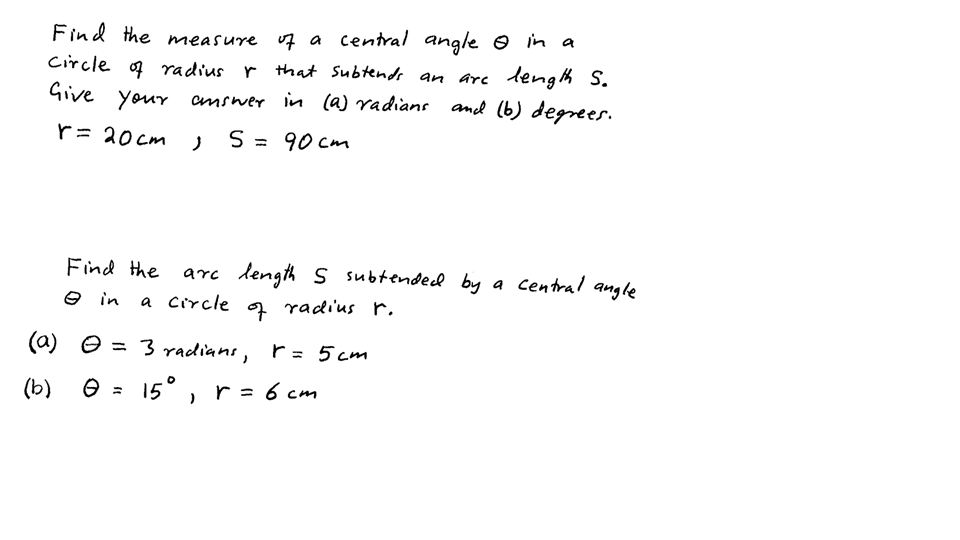 Find the measure of a central angle θ in a
circle of radius r that subtends an arc length S.
Give your answer in (a) radians and (b) degrees.
r = 20 cm , S = 90 cm
Find the arc length S subtended by a central angle
θ in a circle of radius r.
(a) θ = 3 radians, r = 5 cm
(b) θ = 15° , r = 6 cm